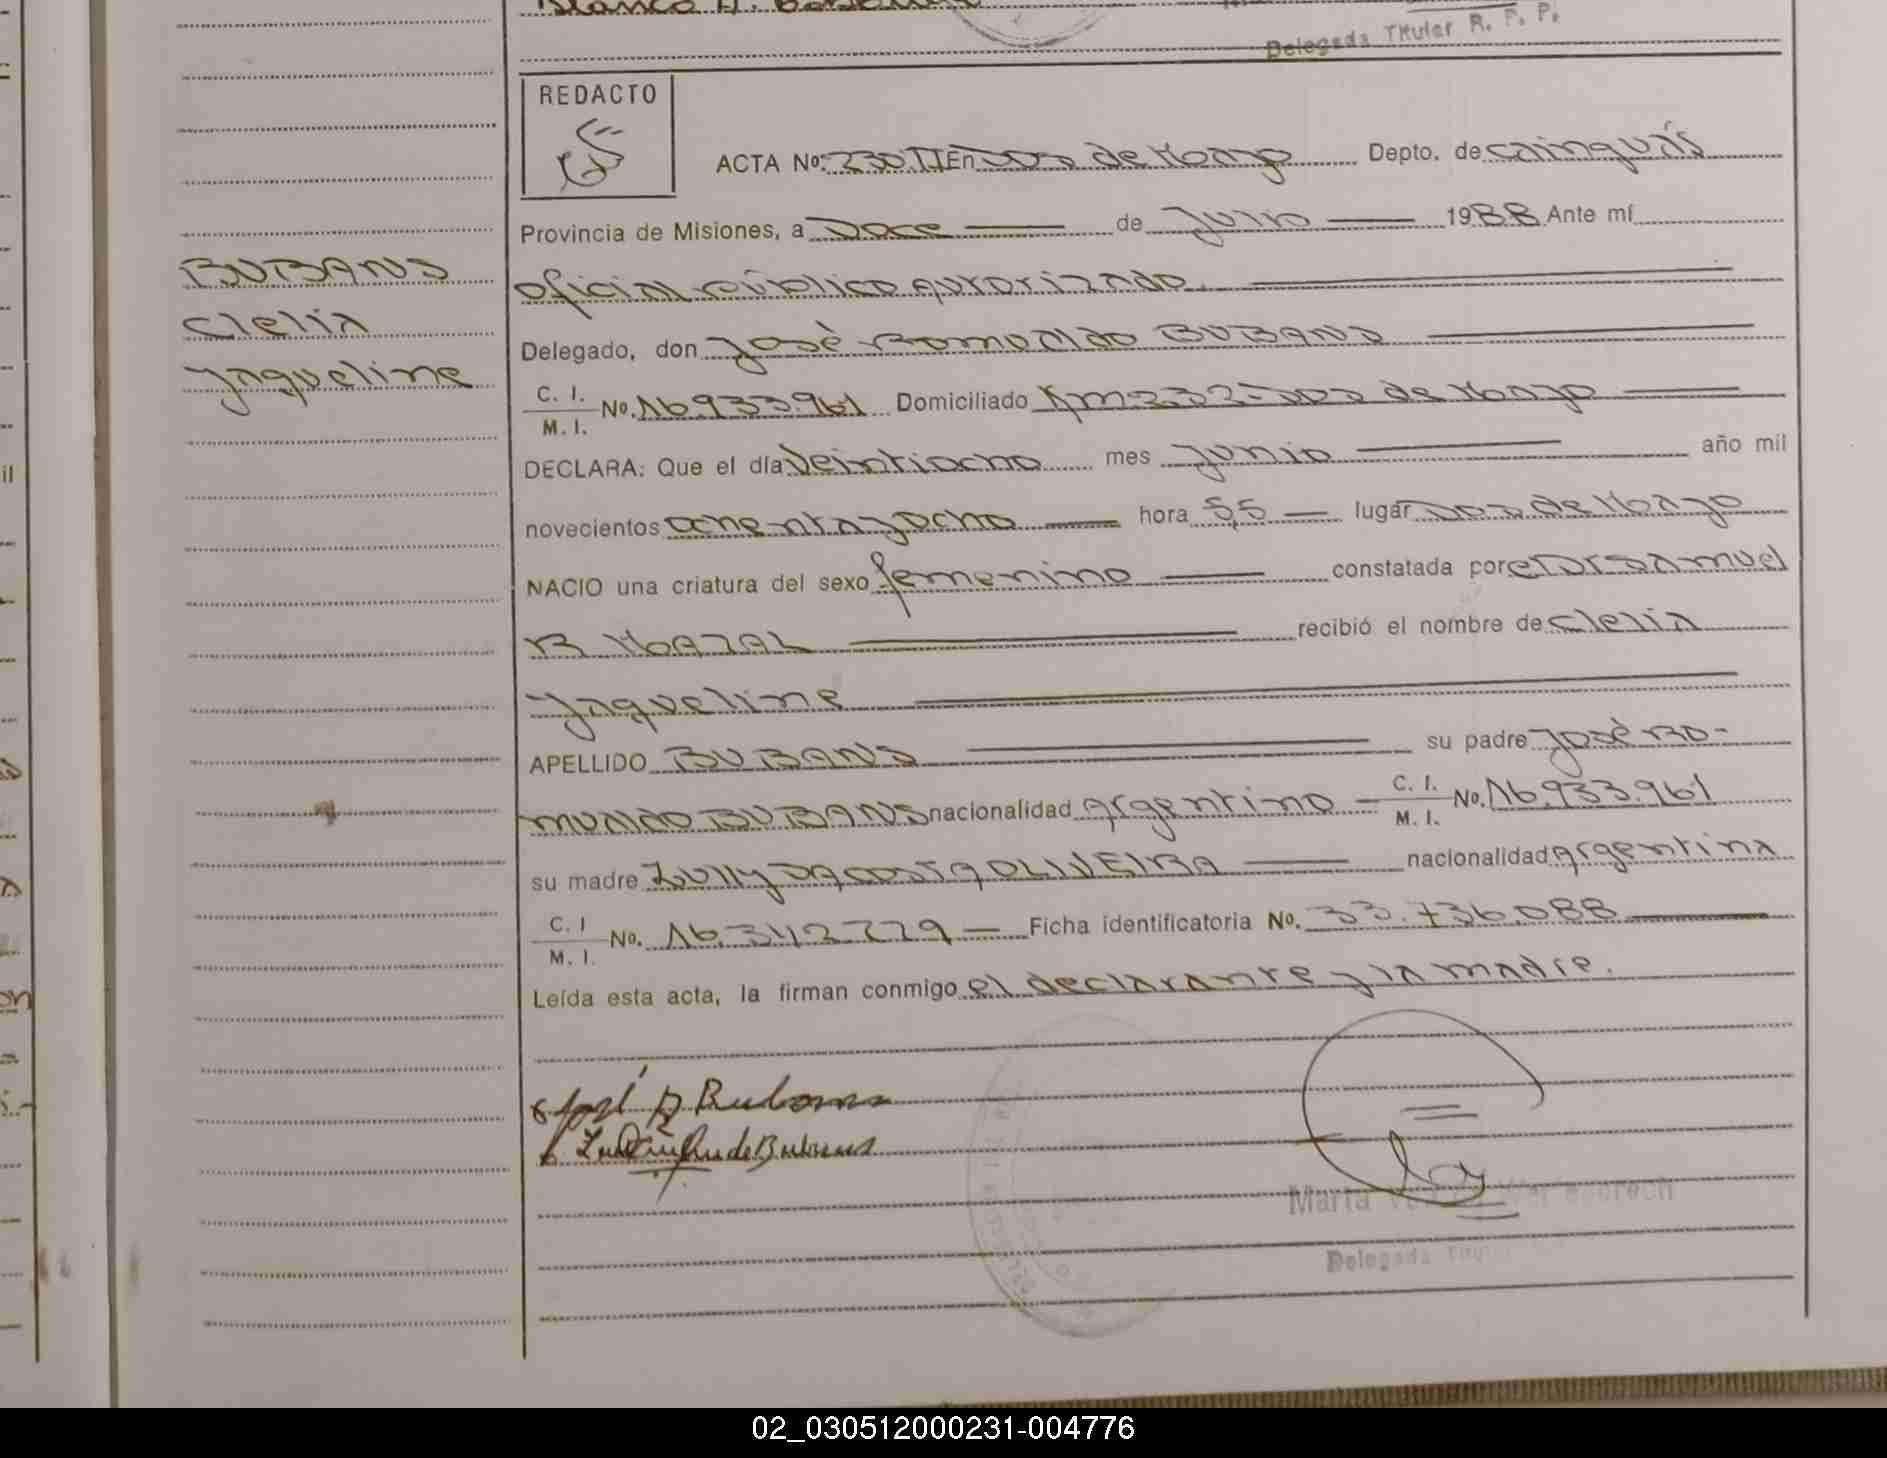 Delegada Titular R. P. P.
REDACTO
ACTA No: 230 II En Dos de Mayo Depto. de cainguás
Provincia de Misiones, a Doce de Julio 1988 Ante mí
oficial público autorizado.
BUBANS
Clelia
Yaqueline
Delegado, don José Romualdo BUBANS
C. I.
M. I. No. 16.933.961 Domiciliado Km 232 - Dos de Mayo
DECLARA: Que el día Veintiocho mes Junio año mil
novecientos ochenta y ocho hora 5,5 lugar Dos de Mayo
NACIO una criatura del sexo femenino constatada por el Dr Samuel
recibió el nombre de Clelia
Yaqueline
APELLIDO BUBANS su padre José Ro-
mualdo BUBANS nacionalidad Argentino C. I.
M. I. No. 16.933.961
su madre Zully DACOSTA OLIVEIRA nacionalidad Argentina
C. I
M. I. No. 16.342.779 Ficha identificatoria No. 33.736.088
Leída esta acta, la firman conmigo el declarante y la madre.
José R Bubans
de Bubans
Marta
Delegada
02_030512000231-004776